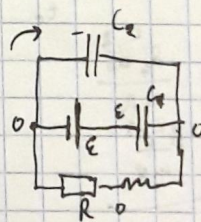 - C₂
0 ε C₁ 0
ε
R 0